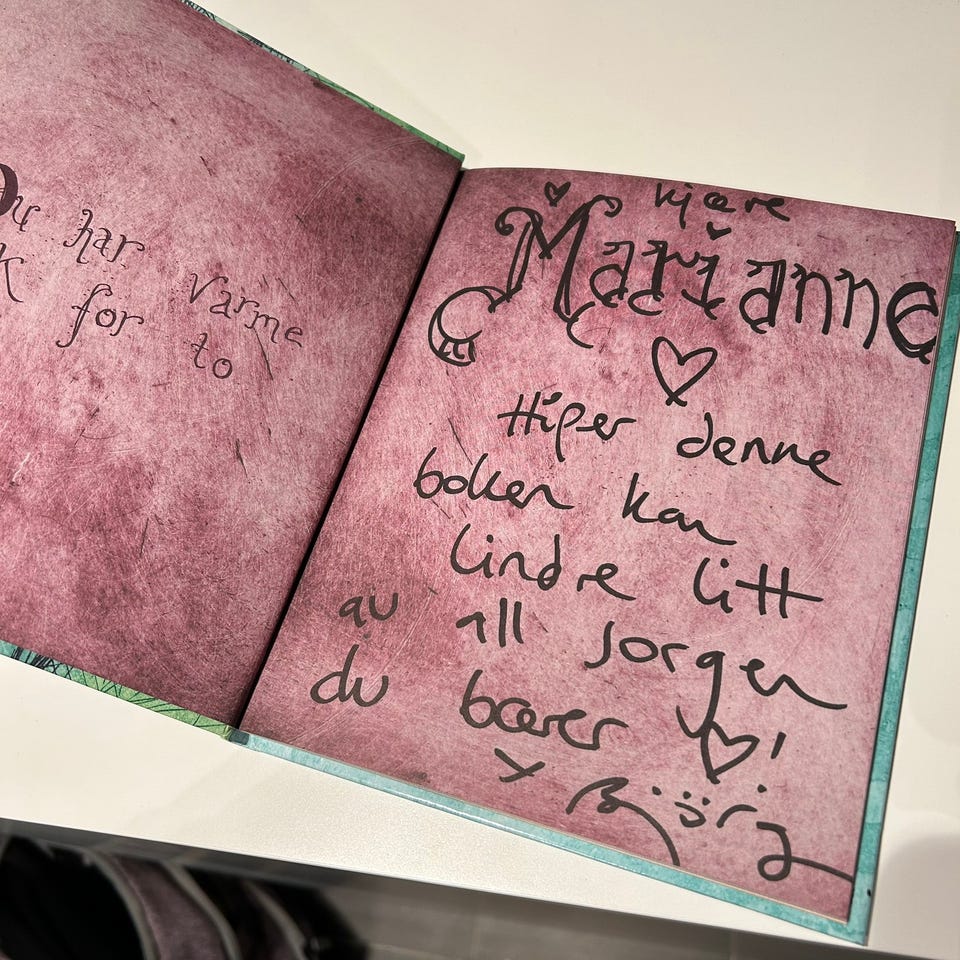 Du har varme
for to
kjære
Marianne
Håper denne
boken kan
lindre litt
av all sorgen
du bærer !
Bjørg